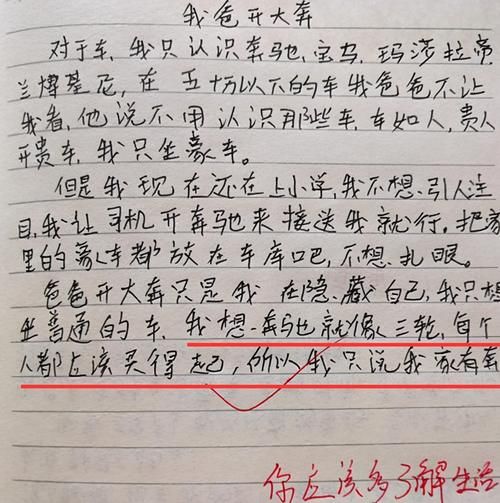 我爸开大奔
对于车,我只认识奔驰,宝马,玛莎拉蒂
兰博基尼,在五十万以下的车我爸爸不让
我看,他说不用认识那些车,车如人,贵人
开贵车,我只坐豪车。
但是我现在还在上小学,我不想引人注
目,我让司机开奔驰来接送我就行。把家
里的豪车都放在车库吧,不想扎眼。
爸爸开大奔只是我在隐藏自己,我只想
坐普通的车,我想奔驰就像三轮,每个
人都应该买得起,所以我只说我家有奔
你应该多了解生活